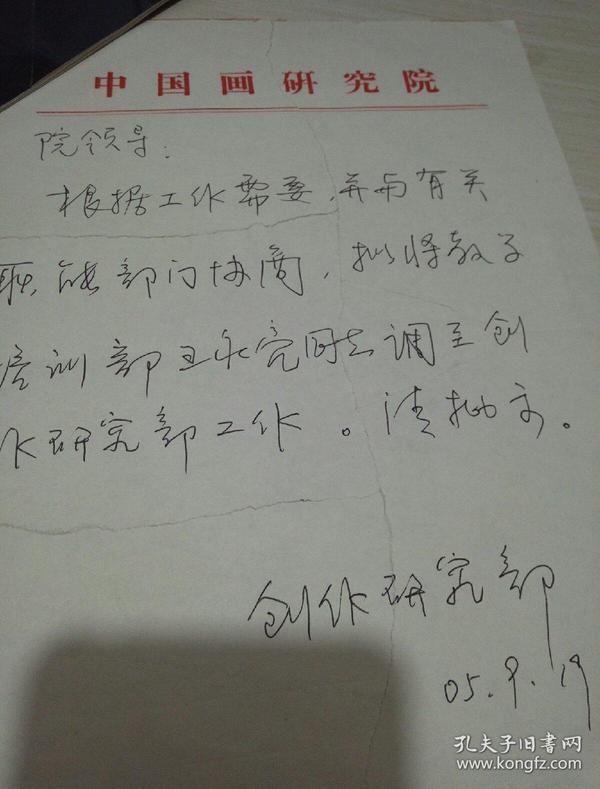 中国画研究院
院领导：
根据工作需要，并与有关
职能部门协商，拟将教学
培训部王永亮同志调至创
作研究部工作。请批示。
创作研究部
05.9.19
孔夫子旧书网
www.kongfz.com